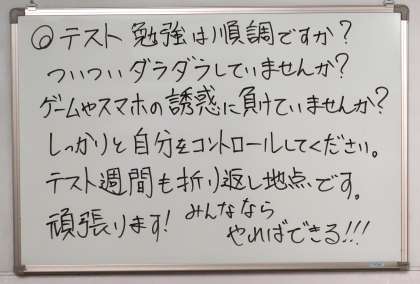 ◎テスト勉強は順調ですか?
ついついダラダラしていませんか?
ゲームやスマホの誘惑に負けていませんか?
しっかりと自分をコントロールしてください。
テスト週間も折り返し地点です。
頑張ります! みんななら
やればできる!!!